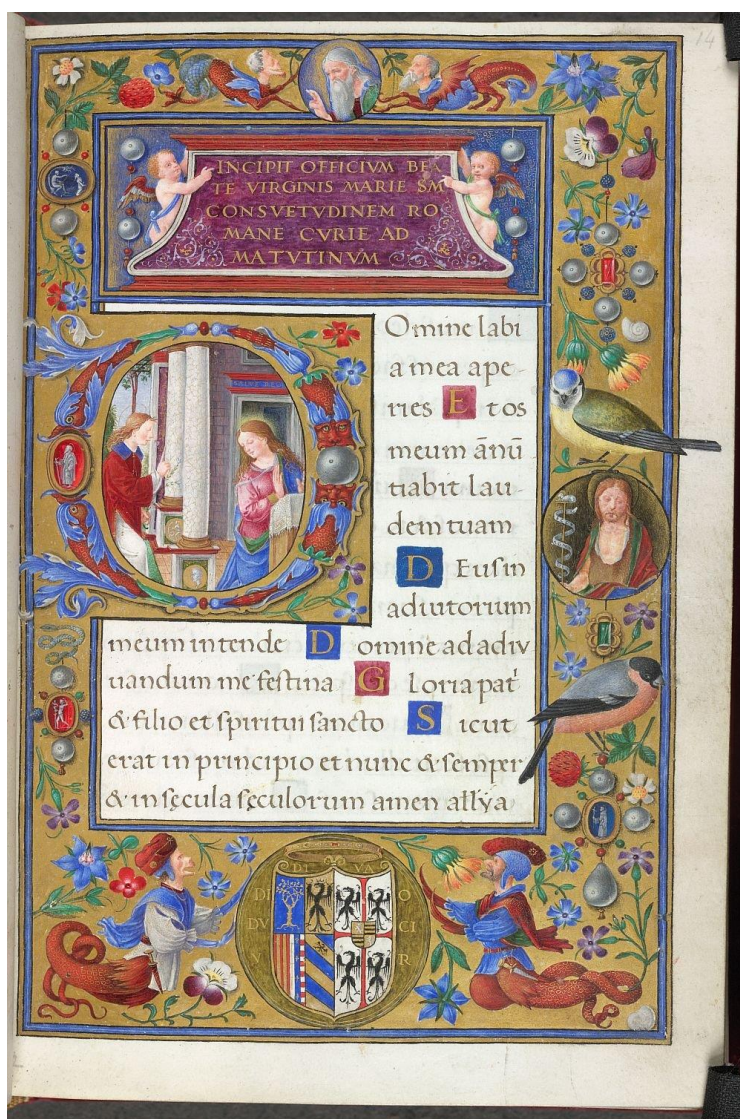 14
INCIPIT OFFICIVM BEA
TE VIRGINIS MARIE SM
CONSVETVDINEM RO
MANE CVRIE AD
MATVTINVM
Omine labi
a mea ape
ries E t os
meum ānū
tiabit lau
dem tuam
D Eus in
adiutorium
meum intende D omine ad adiv
uandum me festina G loria pat
& filio et spiritui sancto S icut
erat in principio et nunc & semper
& in sęcula sęculorum amen allỹa
DI VA